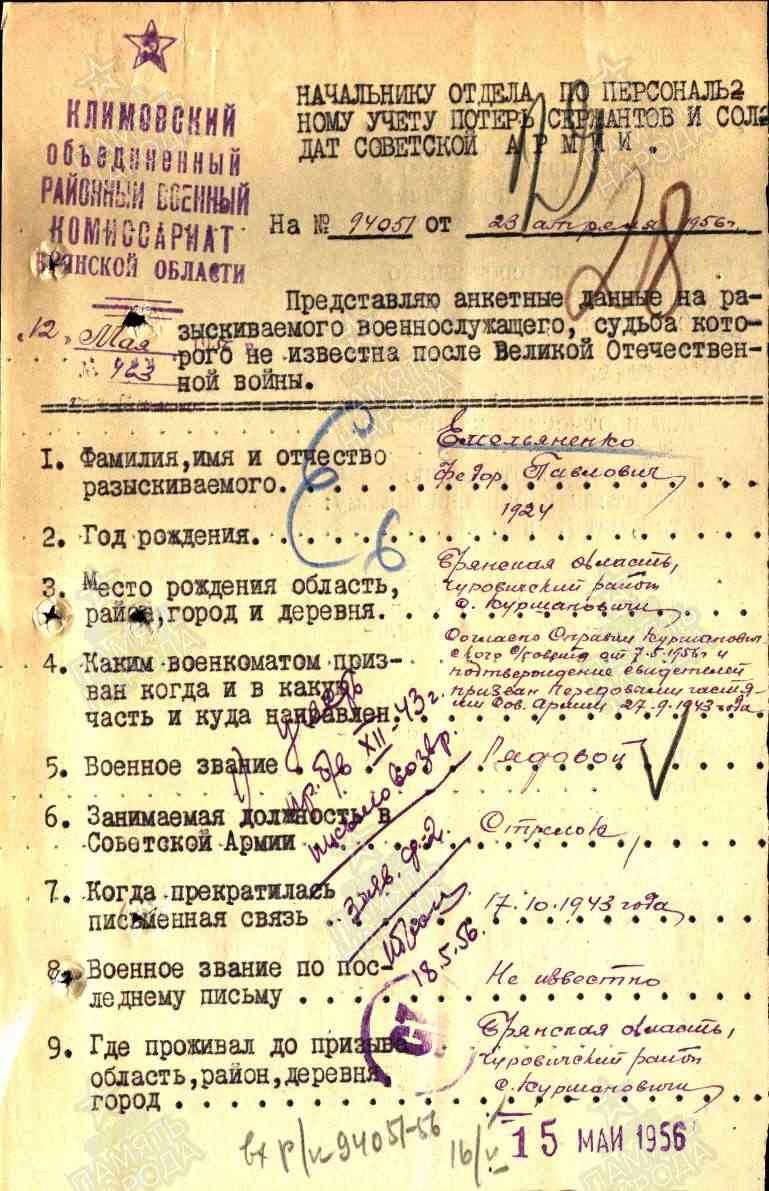 КЛИМОВСКИЙ
объединенный
РАЙОННЫЙ ВОЕННЫЙ
КОМИССАРИАТ
БРЯНСКОЙ ОБЛАСТИ
"12" Мая
№ 423
НАЧАЛЬНИКУ ОТДЕЛА ПО ПЕРСОНАЛЬ-
НОМУ УЧЕТУ ПОТЕРЬ СЕРЖАНТОВ И СОЛ-
ДАТ СОВЕТСКОЙ АРМИИ.
На № 94051 от 23 апреля 1956г.
28
Представляю анкетные данные на ра-
зыскиваемого военнослужащего, судьба кото-
рого не известна после Великой Отечествен-
ной войны.
1. Фамилия,имя и отчество
разыскиваемого.
Емельяненко
Федор Павлович
2. Год рождения.
1924
3. Место рождения область,
район,город и деревня.
Брянская область,
Чуровичский район
с. Куршановичи
4. Каким военкоматом приз-
ван когда и в какую
часть и куда направлен.
Согласно Справки Куршанович
ского с/совета от 7.5.1956г и
подтверждение свидетелей
призван передовыми частя-
ми Сов. Армии 27.9.1943 года
5. Военное звание
Рядовой
6. Занимаемая должность в
Советской Армии
Стрелок
7. Когда прекратилась
письменная связь
17.10.1943 года
8. Военное звание по пос-
леднему письму
Не известно
9. Где проживал до призыва
область,район,деревня,
город
Брянская область,
Чуровичский район
с. Куршановичи
пр. б/в XII-43г.
письмо возвр.
заяв. ф.2
18.5.56.
вх р/к 94051-56
16/V
15 МАЙ 1956
ПАМЯТЬ
НАРОДА